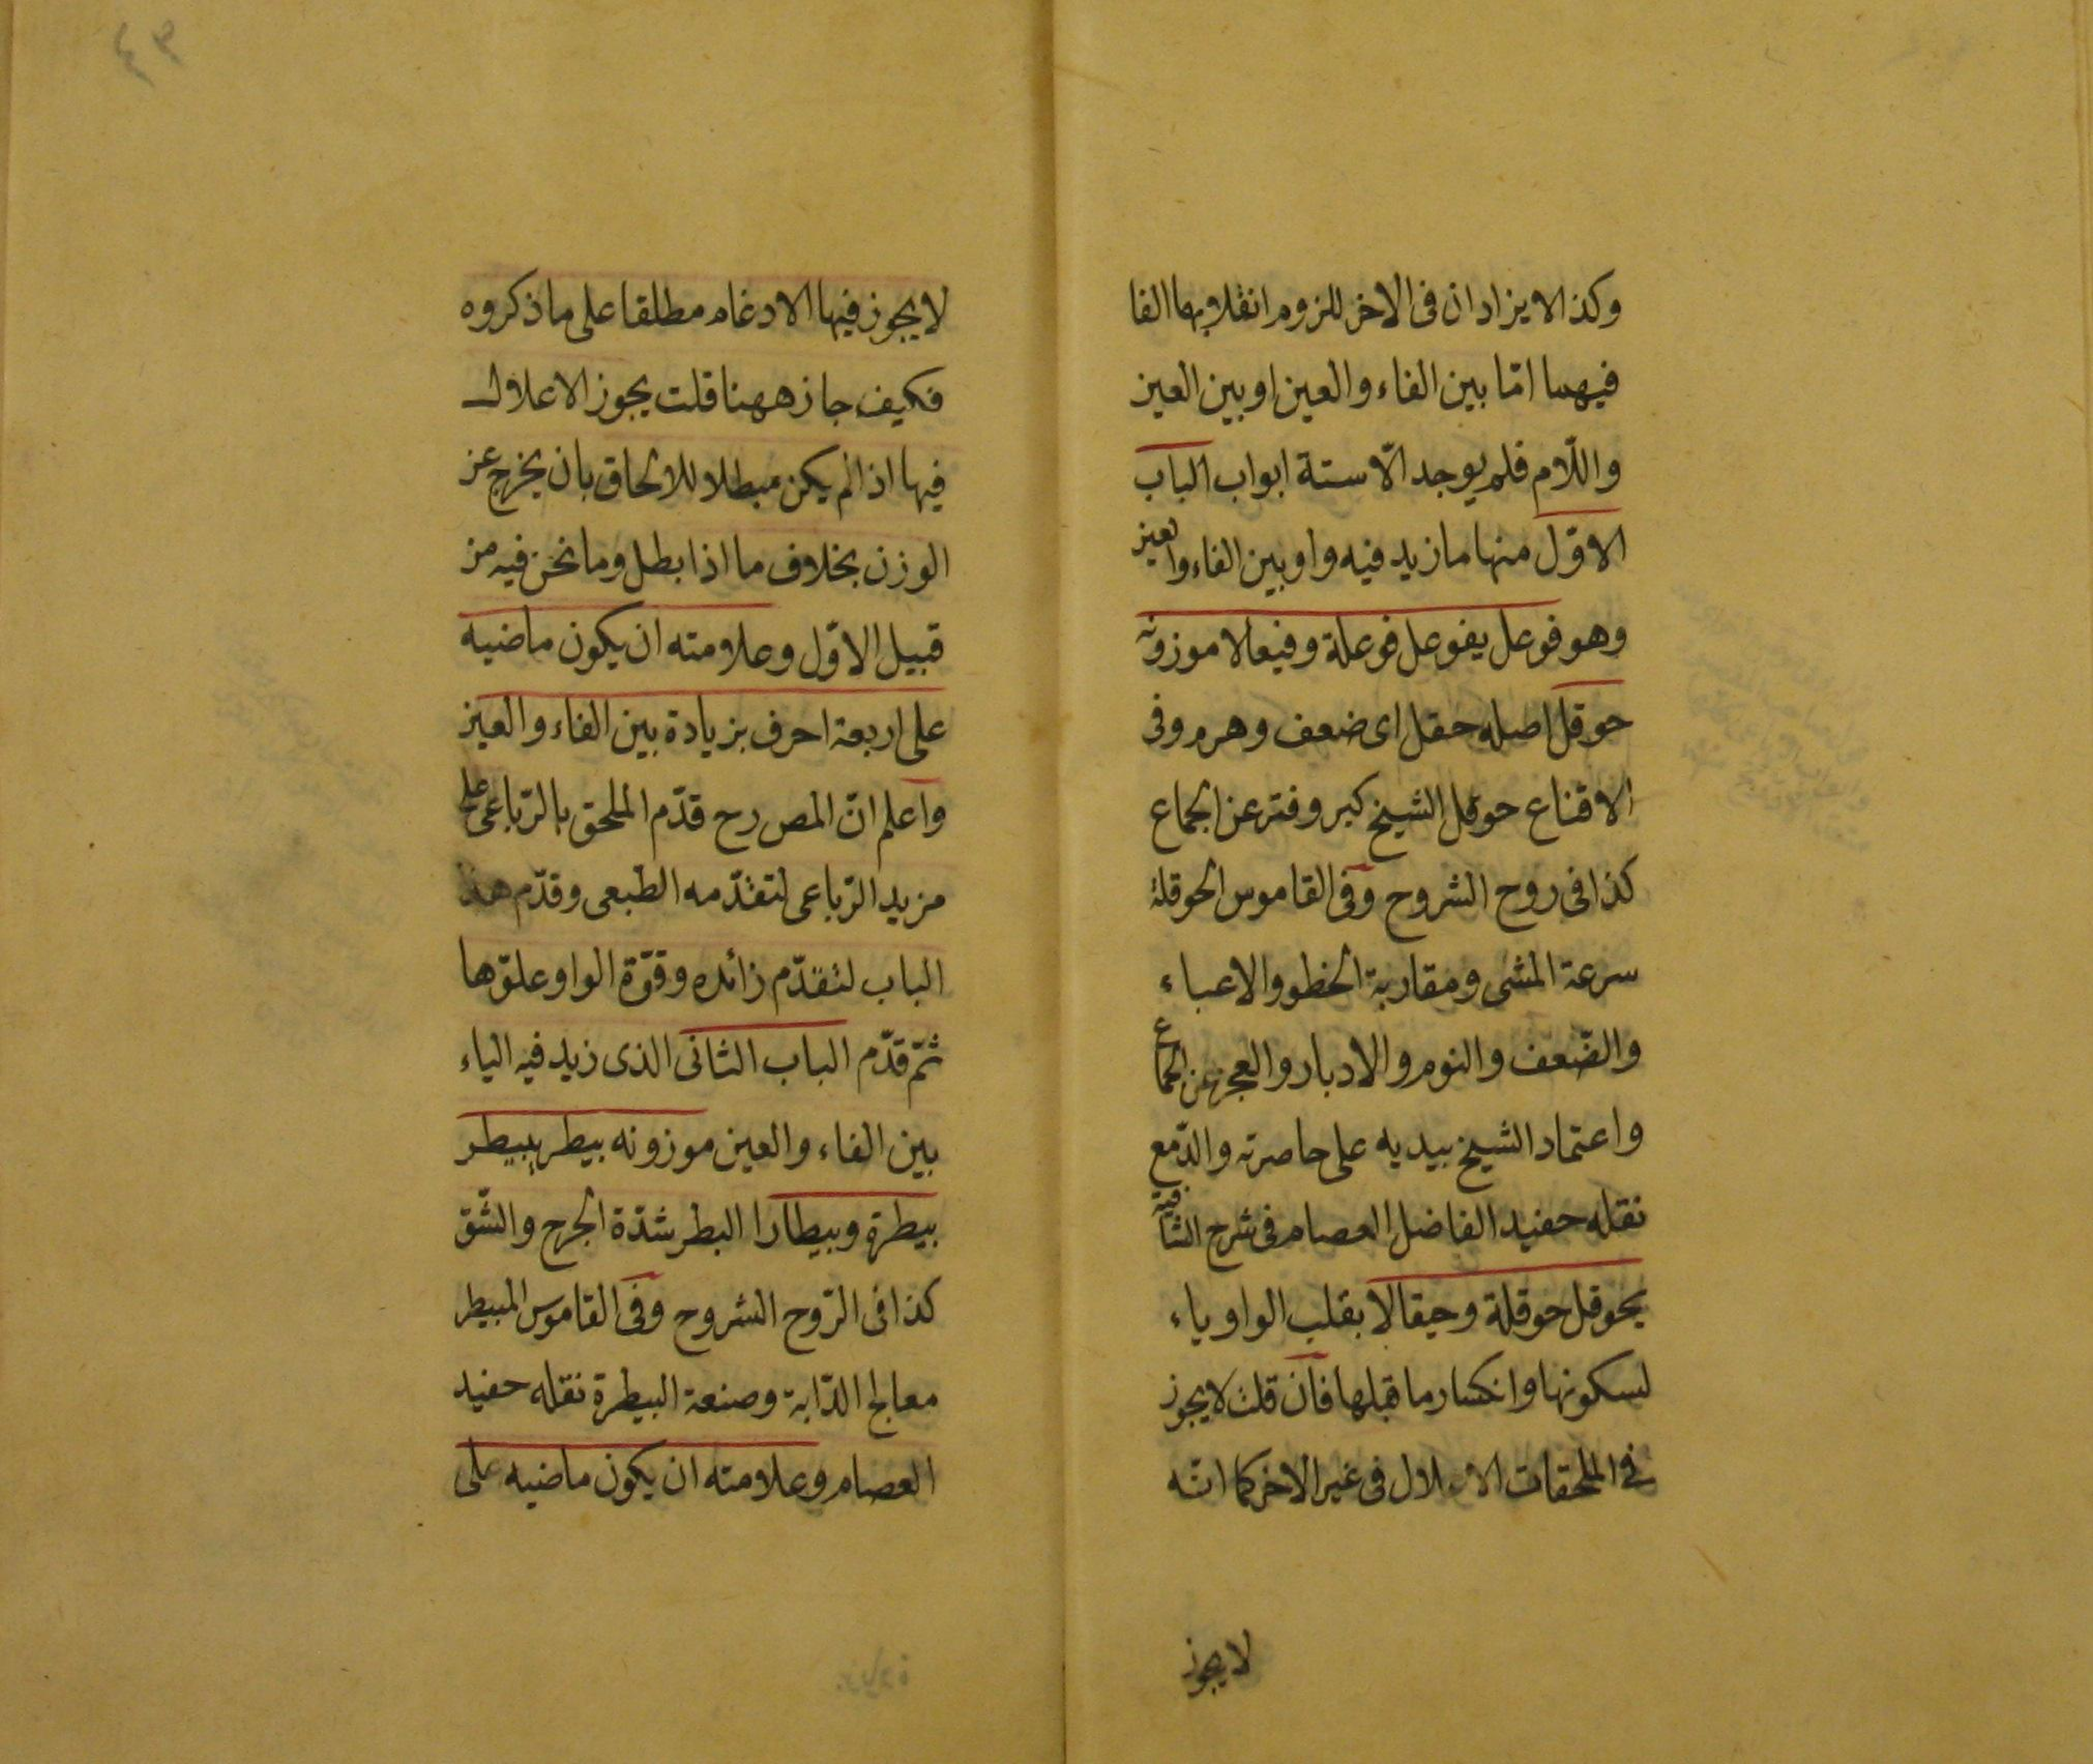 وكذا لا يزادان فى الاخر للزوم انقلابهما الفا
فيهما امّا بين الفاء والعين او بين العين
واللّام فلم يوجد الّا ستة ابواب الباب
الاوّل منها ما زيد فيه واو بين الفاء والعين
وهو فوعل يفوعل فوعلة وفيعالا موزونه
حوقل اصله حقل اى ضعف وهرم وفى
الاقناع حوقل الشيخ كبر وفتر عن الجماع
كذا فى روح الشروح وفى القاموس الحوقلة
سرعة المشى ومقاربة الخطو والاعياء
والضّعف والنوم والادبار والعجز عن الجماع
واعتماد الشيخ بيديه على خاصرته والدّمع
نقله حفيد الفاضل العصام فى شرح الشافية
يحوقل حوقلة وحيقالا بقلب الواو ياء
لسكونها وانكسار ما قبلها فان قلت لا يجوز
فى الملحقات الاعلال فى غير الاخر كما انّه
لا يجوز
لا يجوز فيها الادغام مطلقا على ما ذكروه
فكيف جاز ههنا قلت يجوز الاعلال
فيها اذا لم يكن مبطلا للالحاق بان يخرج عن
الوزن بخلاف ما اذا بطل وما نحن فيه من
قبيل الاوّل وعلامته ان يكون ماضيه
على اربعة احرف بزيادة بين الفاء والعين
واعلم انّ المص رح قدّم الملحق بالرّباعى على
مزيد الرّباعى لتقدّمه الطبعى وقدّم هذا
الباب لتقدّم زائده وقوّة الواو وعلوّها
ثمّ قدّم الباب الثانى الذى زيد فيه الياء
بين الفاء والعين موزونه بيطر يبيطر
بيطرة وبيطارا البطر شدّة الجرح والشّق
كذا فى الرّوح الشروح وفى القاموس المبيطر
معالج الدّابة وصنعة البيطرة نقله حفيد
العصام وعلامته ان يكون ماضيه على